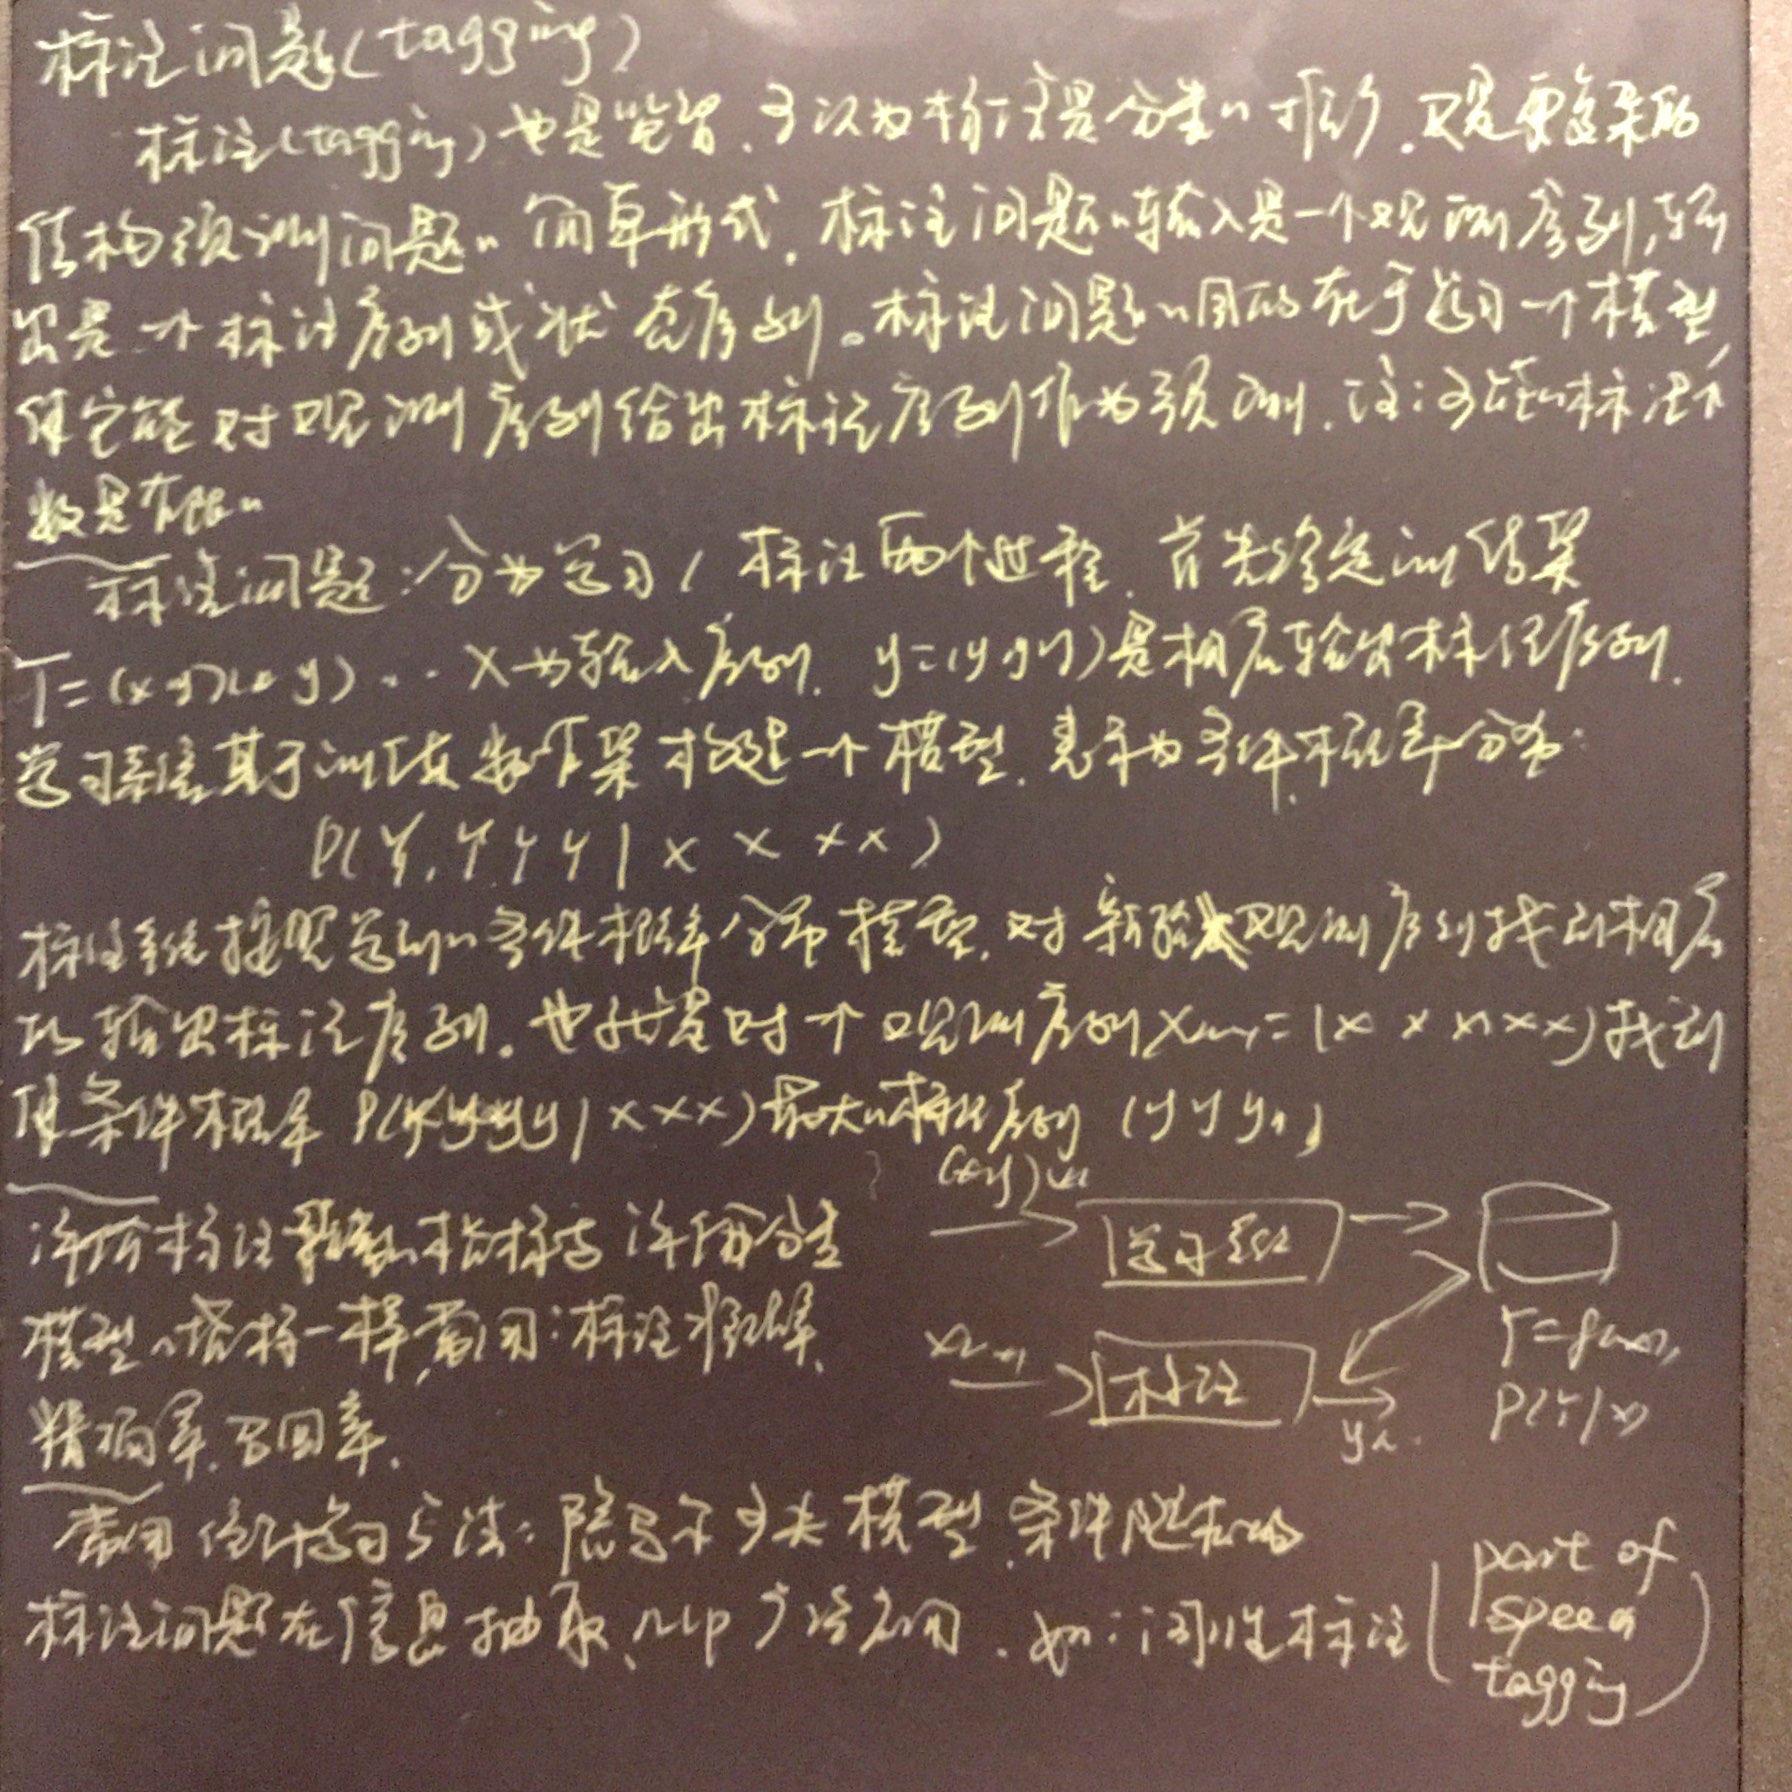 标注问题(tagging)
标注(tagging)也是监督,可以为标注是分类的推广.又是更复杂的
结构预测问题的简单形式.标注问题的输入是一个观测序列,输
出是一个标注序列或状态序列。标注问题的目的在于学习一个模型,
使它能对观测序列给出标记序列作为预测.注:可能的标记个
数是有限的
标注问题:分为学习、标注两个过程.首先给定训练集
T=(x y)(x y)... X为输入序列. y=(y y y)是相应输出标记序列.
学习系统基于训练数据集构建一个模型,表示为条件概率分布:
P(Y,Y Y Y | X X X X)
标注系统按照学到的条件概率分布模型,对新输入观测序列找到相应
的输出标记序列.也就是对一个观测序列X=(X X X X X)找到
使条件概率 P(y y y y | X X X)最大的标记序列 (y y y n)
(x y)
评价标注的指标与评价分类
学习系统
模型的指标一样,常用:标注准确率、
Y=f(x),
标注
P(Y|X)
精确率.召回率.
常用统计学习方法:隐马尔可夫模型.条件随机场
标注问题在信息抽取、nlp 广泛应用.如:词性标注(part of
speech
tagging)